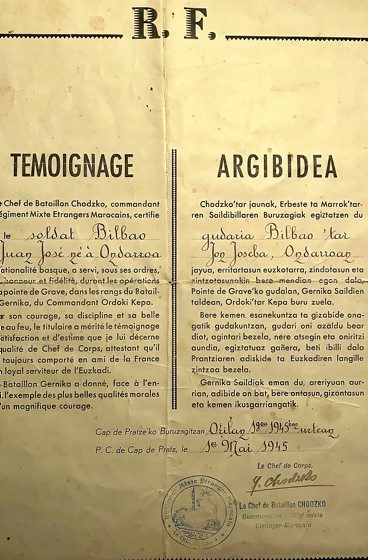 R. F.
TEMOIGNAGE
e Chef de Bataillon Chodzko, commandant
égiment Mixte Etrangers Marocains, certifie
le soldat Bilbao
Juan José né à Ondarroa
ationalité basque, a servi, sous ses ordres,
nneur et Fidélité, durant les opérations
a pointe de Grave, dans les rangs du Batail-
Gernika, du Commandant Ordoki Kepa.
ar son courage, sa discipline et sa belle
e au feu, le titulaire a mérité le témoignage
satisfaction et d'estime que je lui décerne
qualité de Chef de Corps, attestant qu'il
toujours comporté en ami de la France
n loyal serviteur de l'Euzkadi.
e Bataillon Gernika a donné, face à l'en-
i, l'exemple des plus belles qualités morales
d'un magnifique courage.
ARGIBIDEA
Chodzko'tar jaunak, Erbeste ta Marrok'tar-
ren Saildibillaren Buruzagiak egiztatzen du
gudaria Bilbao 'tar
Jon Joseba, Ondarroan
jayua, erritartasunez euzkotarra, zindotasun eta
zintzotasunakin bere mendian egon dala,
Pointe de Grave'ko gudalan, Gernika Saildien
taldean, Ordoki'tar Kepa buru zuela.
Bere kemen, esanekuntza ta gizabide ona-
gatik gudakuntzan, gudari oni azaldu bear
diat, agintari bezela, nere atsegin eta oniritzi
aundia, egiztatuaz gañera, beti ibilli dala
Prantziaren adiskide ta Euzkadiren langille
zintzoa bezela.
Gernika Saildiak eman du, areriyuan aur-
rian, adibide on bat, bere ontasun, gizontasun
eta kemen ikusgarriangatik.
Cap de Pratze'ko Buruzagitzan 1945
P. C. de Cap de Pretz, le 1er Mai 1945
Le Chef de Corps,
Chodzko
Le Chef de Bataillon CHODZKO
Etranger-Marocain